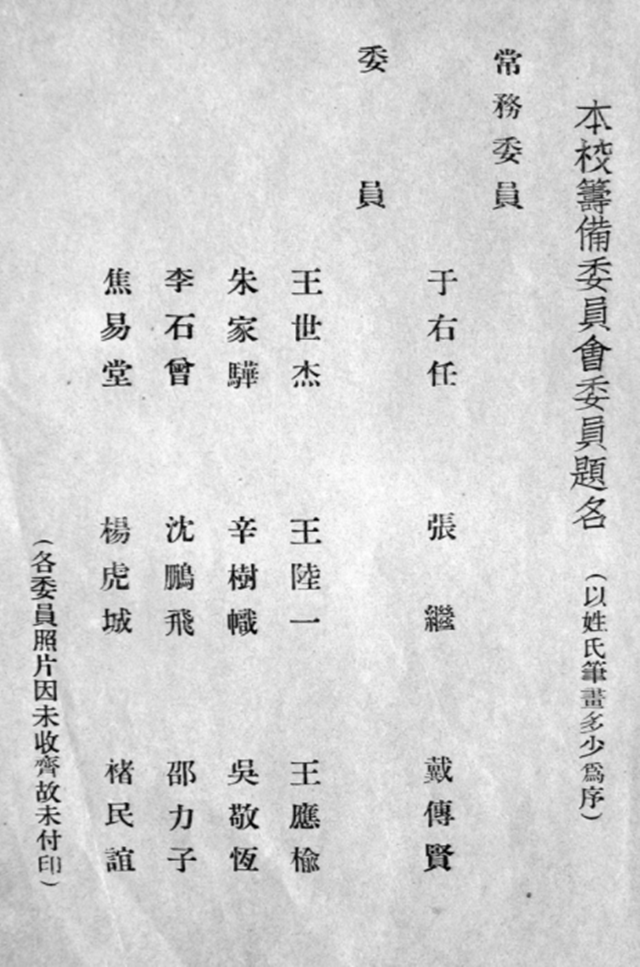 本校籌備委員會委員題名（以姓氏筆畫多少爲序）
常務委員
于右任　張繼　戴傳賢
委員
王世杰　王陸一　王應楡
朱家驊　辛樹幟　吳敬恆
李石曾　沈鵬飛　邵力子
焦易堂　楊虎城　褚民誼
（各委員照片因未收齊故未付印）